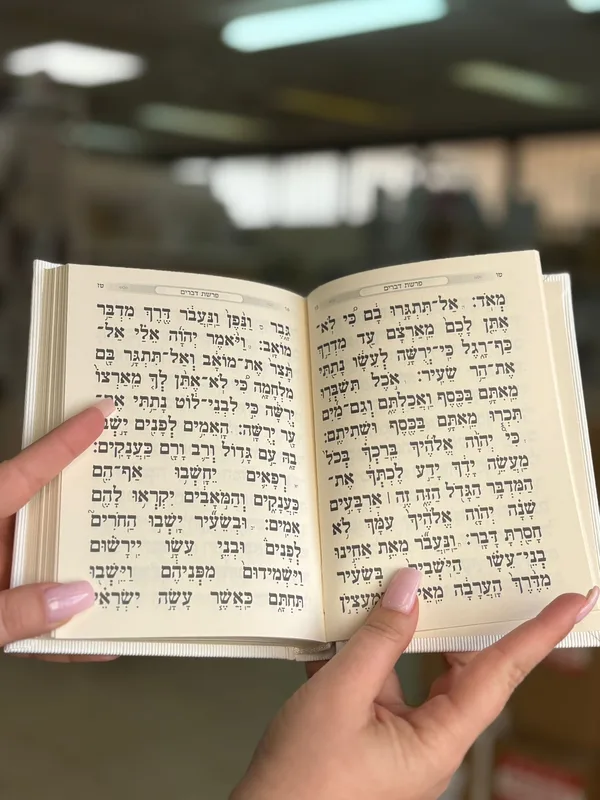 פרשת דברים
מְאֹֽד׃ אַל־תִּתְגָּר֣וּ בָ֔ם כִּ֠י לֹֽא־
אֶתֵּ֤ן לָכֶם֙ מֵֽאַרְצָ֔ם עַ֖ד מִדְרַ֣ךְ
כַּף־רָ֑גֶל כִּֽי־יְרֻשָּׁ֣ה לְעֵשָׂ֔ו נָתַ֖תִּי
אֶת־הַ֥ר שֵׂעִֽיר׃ אֹ֣כֶל תִּשְׁבְּר֧וּ
מֵֽאִתָּ֛ם בַּכֶּ֖סֶף וַאֲכַלְתֶּ֑ם וְגַם־מַ֜יִם
תִּכְר֧וּ מֵאִתָּ֛ם בַּכֶּ֖סֶף וּשְׁתִיתֶֽם׃
כִּי֩ יְהוָ֨ה אֱלֹהֶ֜יךָ בֵּֽרַכְךָ֗ בְּכֹל֙
מַעֲשֵׂ֣ה יָדֶ֔ךָ יָדַ֣ע לֶכְתְּךָ֔ אֶת־
הַמִּדְבָּ֥ר הַגָּדֹ֖ל הַזֶּ֑ה זֶ֣ה ׀ אַרְבָּעִ֣ים
שָׁנָ֗ה יְהוָ֤ה אֱלֹהֶ֙יךָ֙ עִמָּ֔ךְ לֹ֥א
חָסַ֖רְתָּ דָּבָֽר׃ וַֽנַּעֲבֹ֞ר מֵאֵ֧ת אַחֵ֣ינוּ
בְנֵי־עֵשָׂ֗ו בְּשֵׂעִ֔יר
מִדֶּ֙רֶךְ֙ הָֽעֲרָבָ֔ה
פרשת דברים
גָּ֑בֶר ס וַנֵּ֙פֶן֙ וַֽנַּעֲבֹ֔ר דֶּ֖רֶךְ מִדְבַּ֥ר
מוֹאָֽב׃ וַיֹּ֨אמֶר יְהוָ֜ה אֵלַ֗י אַל־
תָּ֙צַר֙ אֶת־מוֹאָ֔ב וְאַל־תִּתְגָּ֥ר בָּ֖ם
מִלְחָמָ֑ה כִּ֠י לֹֽא־אֶתֵּ֨ן לְךָ֤ מֵֽאַרְצוֹ֙
יְרֻשָּׁ֔ה כִּ֣י לִבְנֵי־ל֔וֹט נָתַ֥תִּי
עָ֖ר יְרֻשָּֽׁה׃ הָאֵמִ֥ים לְפָנִ֖ים
בָ֑הּ עַ֣ם גָּד֥וֹל וְרַ֛ב וָרָ֖ם כָּעֲנָקִֽים׃
רְפָאִ֛ים יֵחָשְׁב֥וּ אַף־הֵ֖ם
כָּעֲנָקִ֑ים וְהַמֹּ֣אָבִ֔ים יִקְרְא֥וּ לָהֶ֖ם
אֵמִֽים׃ וּבְשֵׂעִ֞יר יָשְׁב֣וּ הַחֹרִים֮
לְפָנִים֒ וּבְנֵ֧י עֵשָׂ֣ו יִֽירָשׁ֗וּם
וַיַּשְׁמִידוּם֙ מִפְּנֵיהֶ֔ם וַיֵּשְׁב֖וּ
תַּחְתָּ֑ם כַּאֲשֶׁ֧ר עָשָׂ֣ה